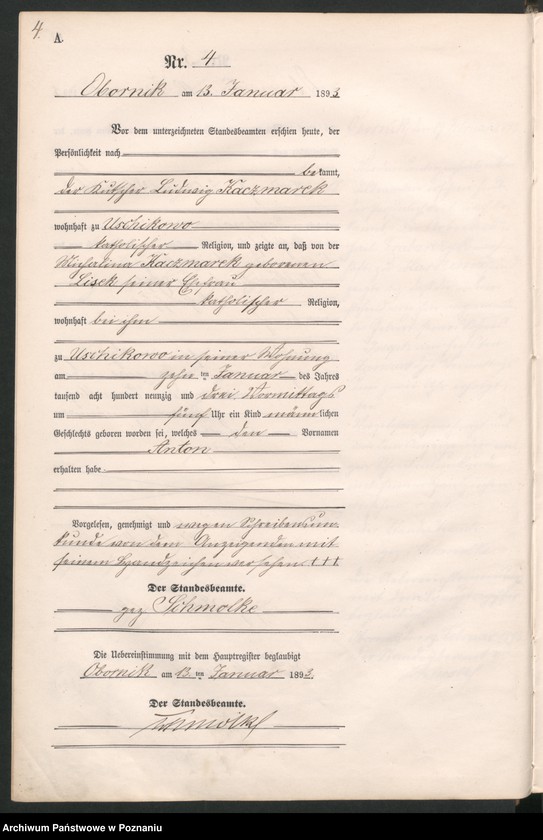 4.
A.
Nr. 4
Obornik am 13. Januar 1893
Vor dem unterzeichneten Standesbeamten erschien heute, der
Persönlichkeit nach
bekannt,
der Kutscher Ludwig Kaczmarek
wohnhaft zu Uschikowo
katholischer Religion, und zeigte an, daß von der
Michalina Kaczmarek geborenen
Lisek seiner Ehefrau
katholischer Religion,
wohnhaft bei ihm
zu Uschikowo in seiner Wohnung
am zehn ten Januar des Jahres
tausend acht hundert neunzig und drei Vormittags
um fünf Uhr ein Kind männlichen
Geschlechts geboren worden sei, welches den Vornamen
Anton
erhalten habe.
Vorgelesen, genehmigt und wegen Schreibensun-
kunde von dem Anzeigenden mit
seinem Handzeichen versehen. ttt
Der Standesbeamte.
gez Schmolke
Die Uebereinstimmung mit dem Hauptregister beglaubigt
Obornik am 13 ten Januar 1893.
Der Standesbeamte.
Schmolke
Archiwum Państwowe w Poznaniu